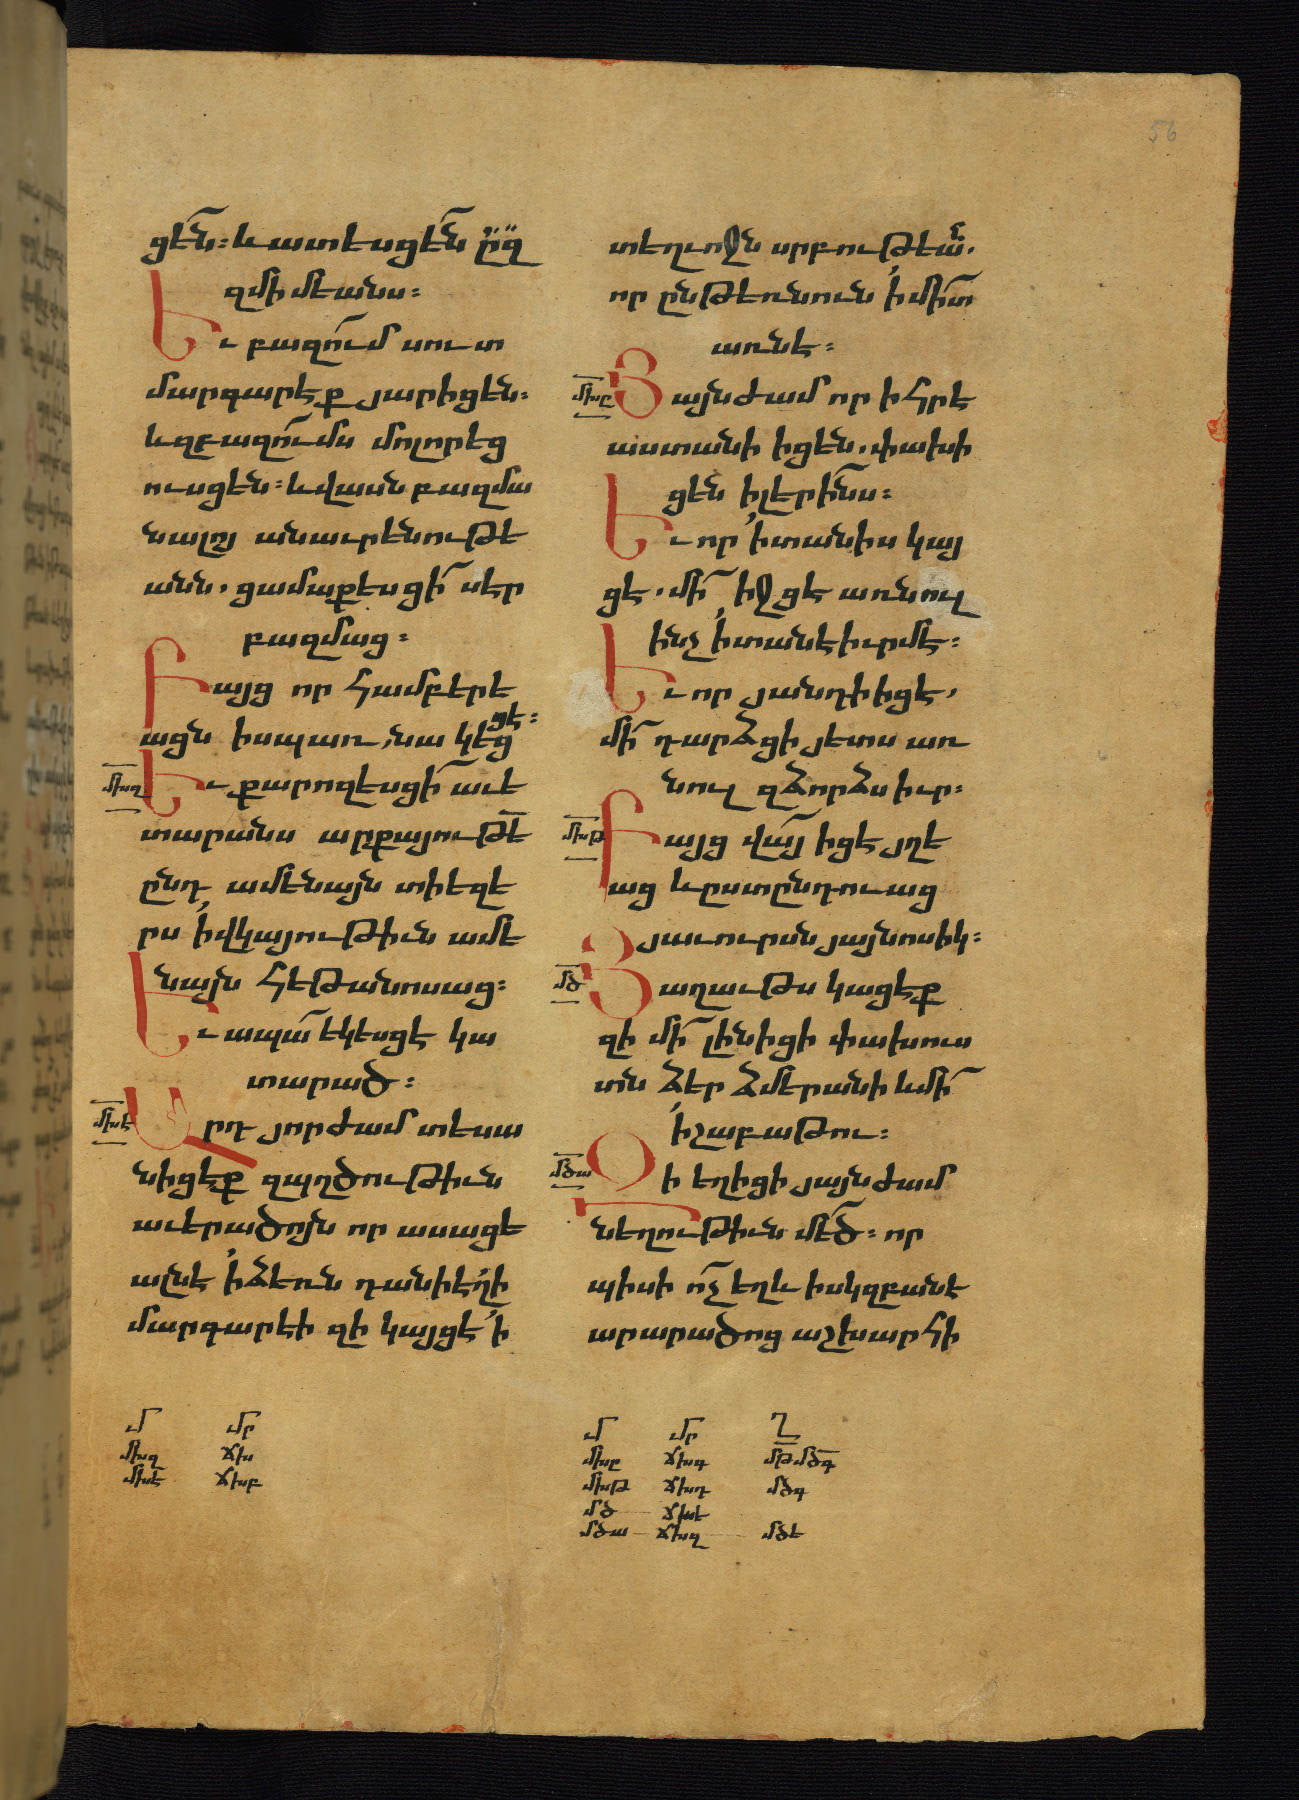 56
ցեն̃։ և ատեսցեն̃ զ
զմիմեանս։
Եւ բազում սուտ
մարգարէք յարիցեն։
և զբազումս մոլորեց
ուսցեն։ և վասն բազմա
նալոյ անաւրէնութե
անն. ցամաքեսցի սէր
բազմաց։
Բայց որ համբերե
ցէ։
ացն իսպառ, նա կեց
մխզ
Եւ քարոզեսցի աւե
տարանս արքայութե̃
ընդ ամենայն տիեզե
րս ի վկայութիւն ամե
նայն հեթանոսաց։
Եւ ապա եկեսցէ կա
տարած։
մխէ
Արդ յորժամ տեսա
նիցէք զպղծութիւն
աւերածոյն որ ասացե
ալնէ ի ձեռն դանիէլի
մարգարէի զի կայցէ ի
տեղւոջն սրբութեա̃ն.
որ ընթեռնուն ի միտ
առնէ։
մխը
Յայնժամ որ ի հրէ
աստանի իցեն. փախի
ցեն ի լերինս։
Եւ որ ի տանիս կայ
ցէ. մի իջցէ առնուլ
ինչ ի տանէ իւրմէ։
Եւ որ յանդի իցէ,
մի դարձցի յետս առ
նուլ զձորձս իւր։
մխթ
Բայց վայ իցէ յղե
աց և ըստընդուաց
յաւուրսն յայնոսիկ։
մծ
Յաղաւթս կացէք
զի մի լինիցի փախուս
տն ձեր ձմերանի և մի
ի շաբաթու։
մծա
Զի եղիցի յայնժամ
նեղութիւն մեծ։ որ
պիսի ոչ եղև ի սկզբանէ
արարածոց աշխարհի
մ մր
մխզ ճխ
մխէ ճխբ
մ մր ղ
մխը ճխգ մթ մծգ
մխթ ճխդ մծգ
մծ ճխե
մծա ճխզ մծե